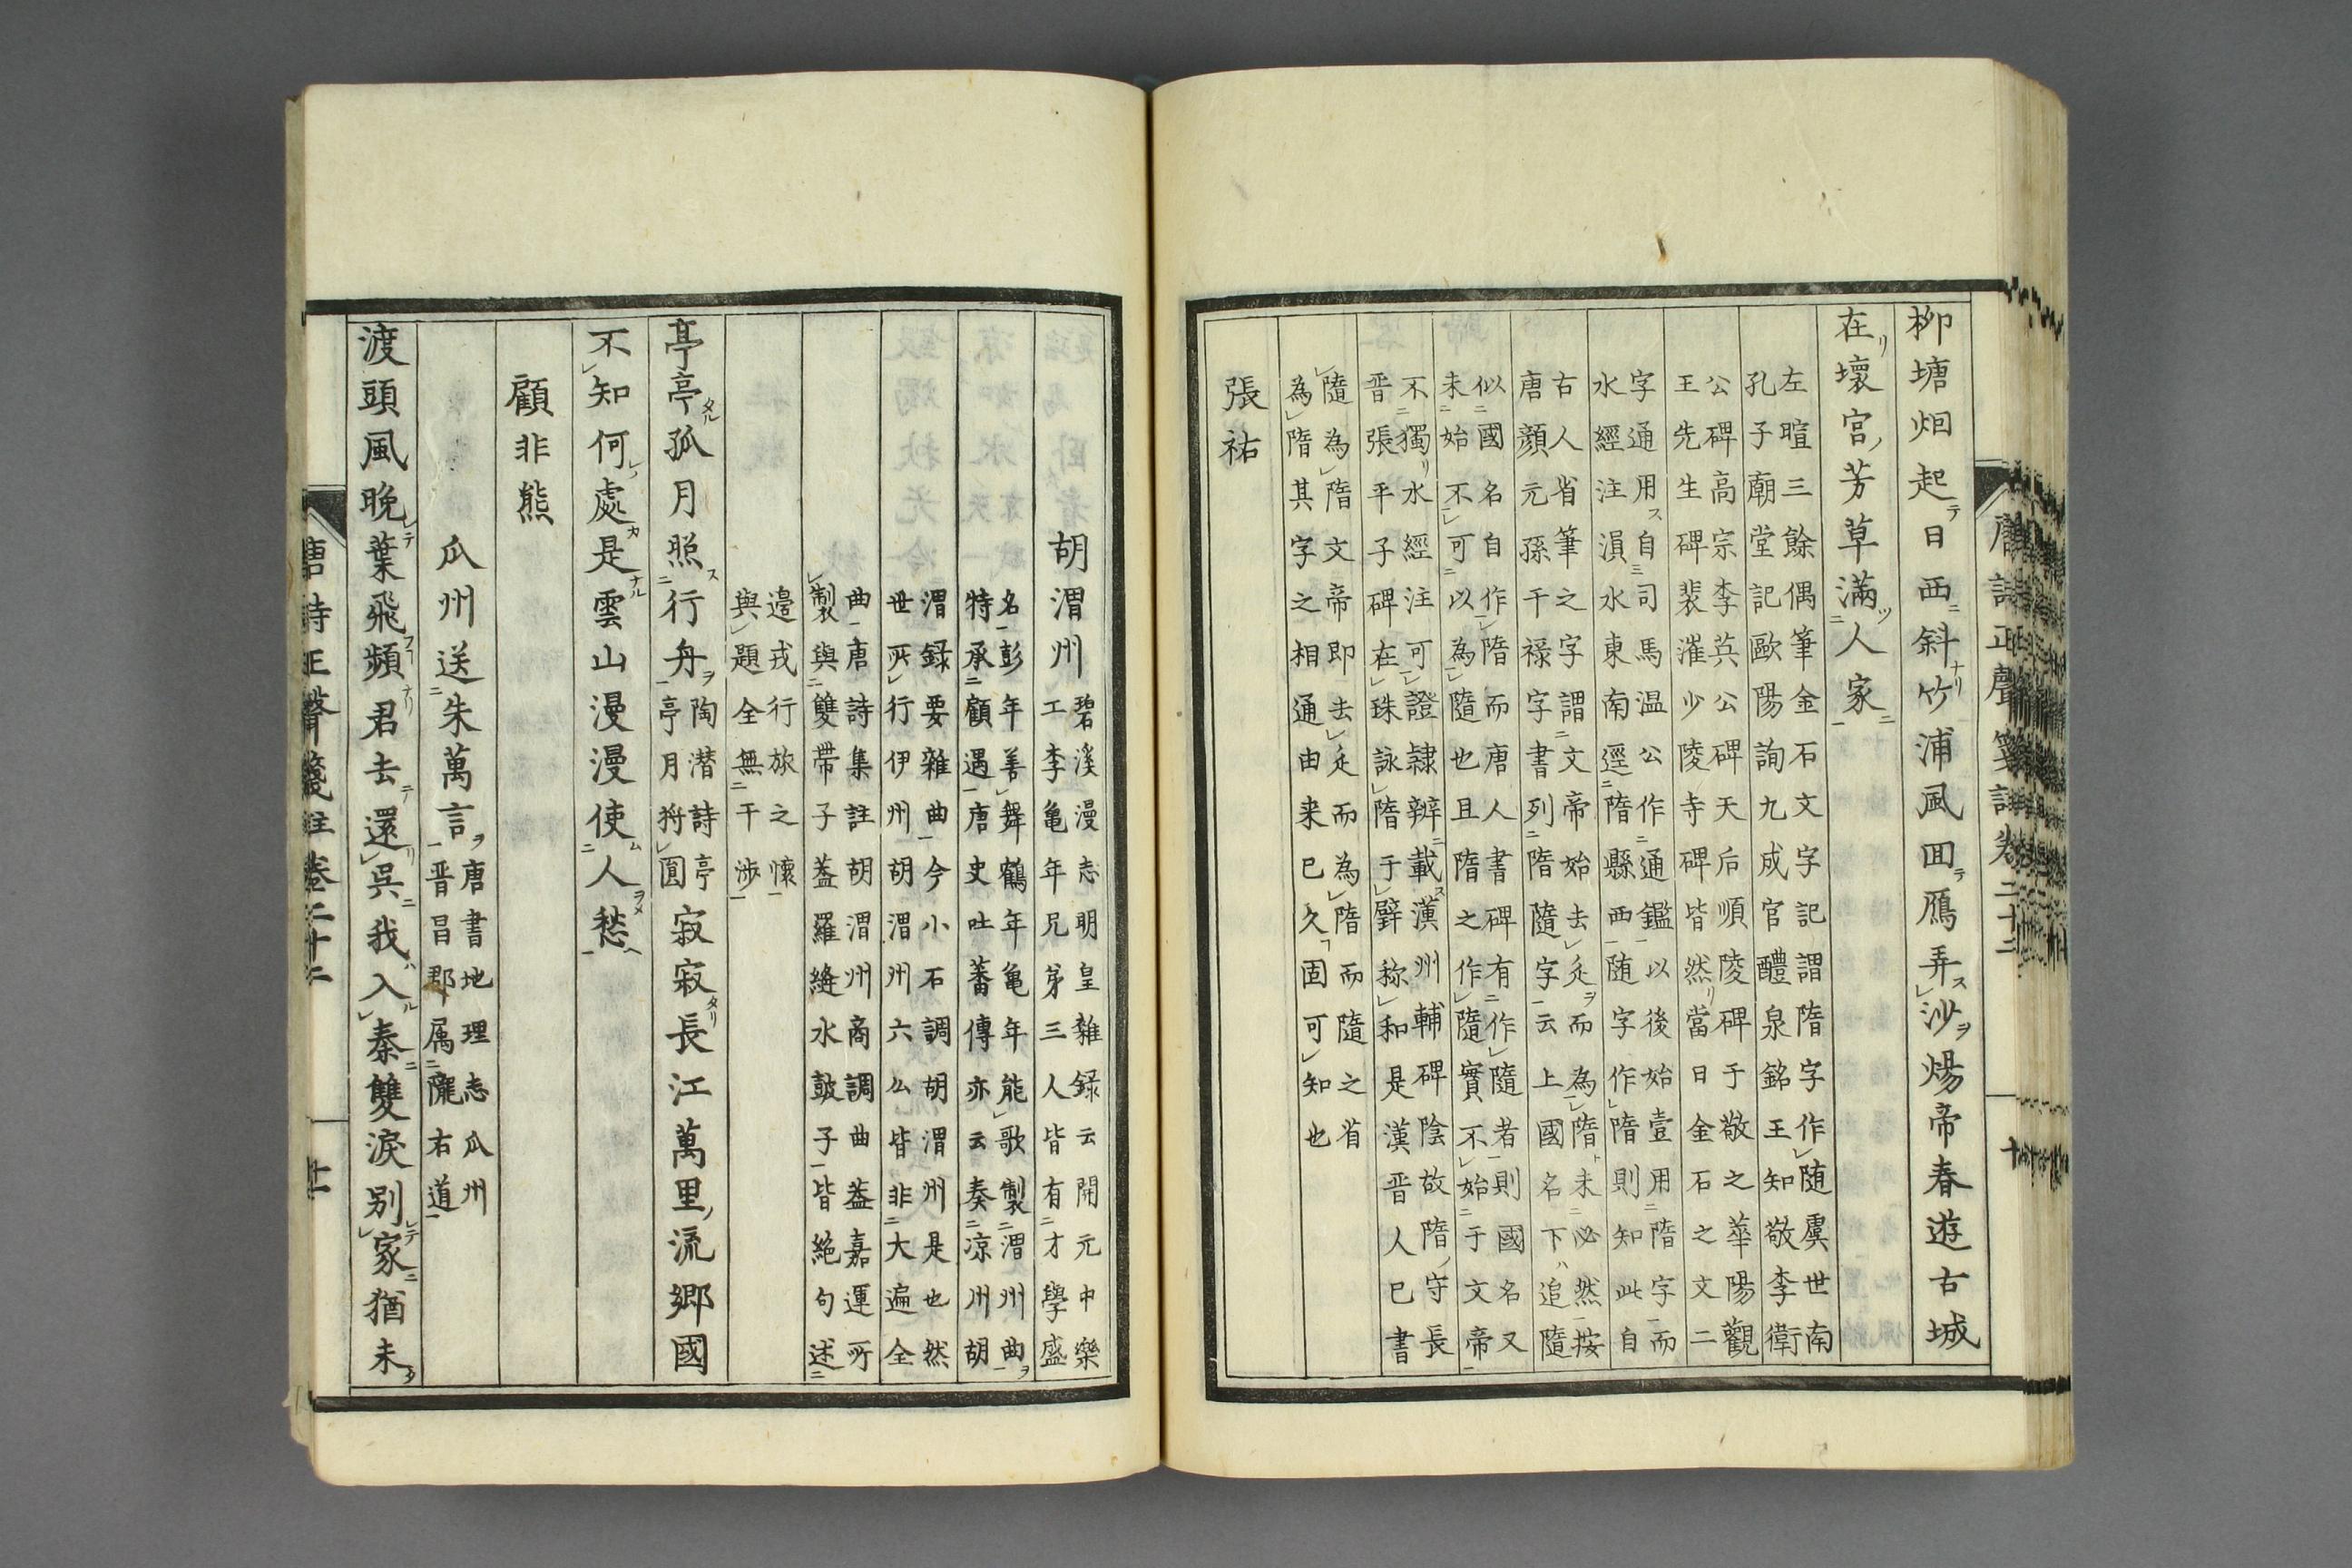 唐詩正聲箋註卷二十二　十
柳塘烟起日西斜竹浦風回鴈弄沙煬帝春遊古城
在壞宮芳草滿人家
左暄三餘偶筆金石文字記謂隋字作随虞世南
孔子廟堂記歐陽詢九成宮醴泉銘王知敬李衛
公碑高宗李英公碑天后順陵碑于敬之華陽觀
王先生碑裴漼少陵寺碑皆然當日金石之文二
字通用自司馬温公作通鑑以後始壹用隋字而
水經注溳水東南逕隋縣西随字作隋則知此自
古人省筆之字謂文帝始去辵而為隋未必然按
唐顏元孫干禄字書列隋隨字云上國名下追隨
似國名自作隋而唐人書碑有作隨者則國名又
未始不可以為隨也且隋之作隨實不始于文帝
不獨水經注可證隷辨載漢州輔碑陰故隋守長
晋張平子碑在珠詠隋于躃称和是漢晋人已書
隨為隋文帝即去辵而為隋而隨之省
為隋其字之相通由来已久固可知也
張祐
胡渭州
碧溪漫志明皇雜録云開元中樂
工李亀年兄弟三人皆有才學盛
名彭年善舞鶴年亀年能歌製渭州曲
特承顧遇唐史吐蕃傳亦云奏凉州胡
渭録要雜曲今小石調胡渭州是也然
世所行伊州胡渭州六么皆非大遍全
曲唐詩集註胡渭州商調曲蓋嘉運所
製與雙帶子蓋羅縫水皷子皆絶句述
邊戎行旅之懷
與題全無干涉
亭亭孤月照行舟
陶潜詩亭
亭月将圓
寂寂長江萬里流鄉國
不知何處是雲山漫漫使人愁
顧非熊
瓜州送朱萬言
唐書地理志瓜州
晋昌郡属隴右道
渡頭風晚葉飛頻君去還呉我入秦雙淚别家猶未
唐詩正聲箋註卷二十二　十一